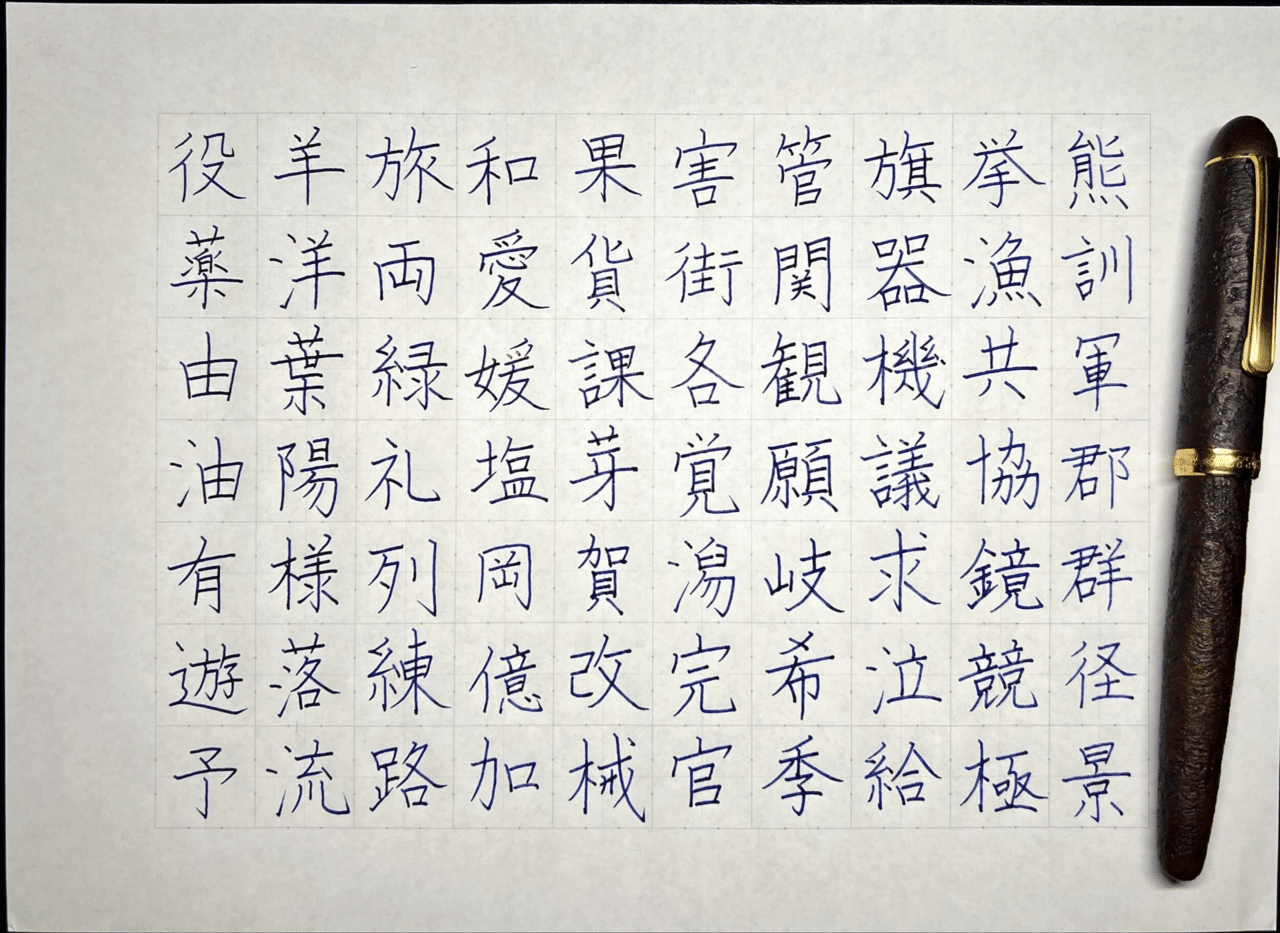 役薬由油有遊予
羊洋葉陽様落流
旅両緑礼列練路
和愛媛塩岡億加
果貨課芽賀改械
害街各覚潟完官
管関観願岐希季
旗器機議求泣給
挙漁共協鏡競極
熊訓軍郡群径景